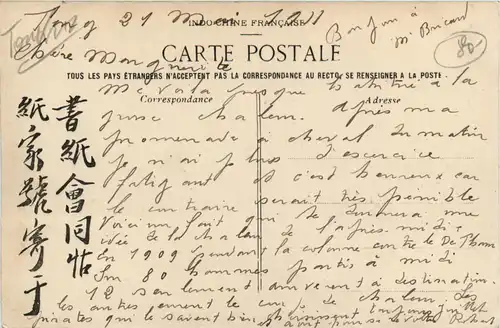 Tong 21 Mai 1911
INDO-CHINE FRANÇAISE
Bonjour à
Mr Bricard
Chère Marguerite
CARTE POSTALE
80-
TOUS LES PAYS ÉTRANGERS N'ACCEPTENT PAS LA CORRESPONDANCE AU RECTO, SE RENSEIGNER A LA POSTE.
Me voilà presque habitué à la
Correspondance
Adresse
grosse chaleur. Après ma
promenade à cheval du matin
je n'ai plus d'exercice
fatigant et c'est heureux car
le contraire serait très pénible
Voici un fait qui te donnera une
idée de la chaleur de l'après-midi
En 1909 pendant la colonne contre le De Tham
Sur 80 hommes partis à midi
12 seulement arrivèrent à destination
les autres eurent le coup de chaleur. Les
pirates qui le savent bien choisissent toujours
書紙會同帖
紙家號寄于